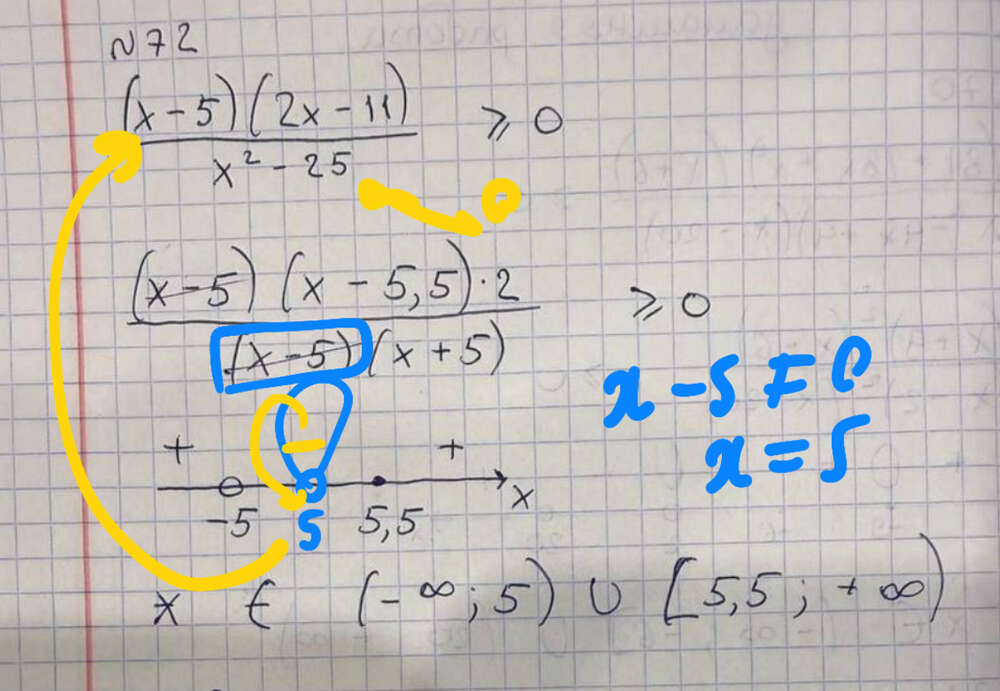 N72
(x-5)(2x-11) ⩾ 0
x² - 25
0
(x-5) (x - 5,5)·2 ⩾ 0
(x-5) (x+5)
x-5≠0
x=5
+ - +
-5 5 5,5 x
x ∈ (-∞; 5) ∪ [5,5; +∞)